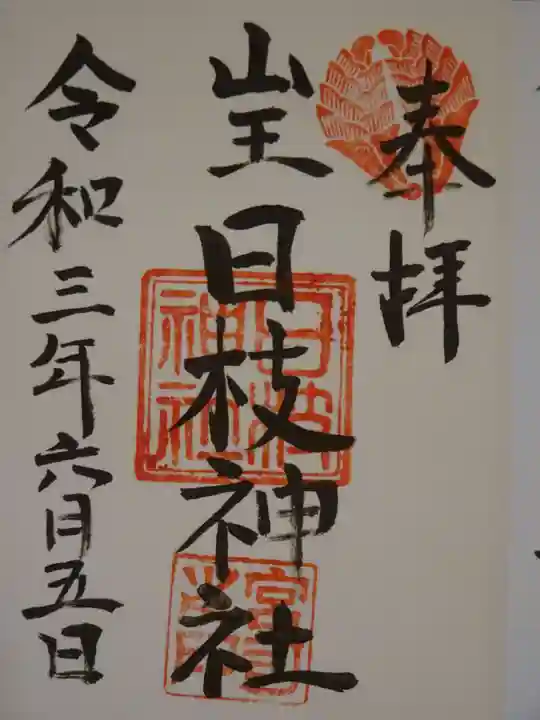 奉拝
山王日枝神社
日枝神社
令和三年六月五日